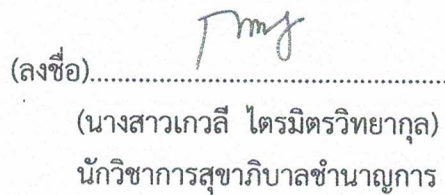 (ลงชื่อ)......................................................
(นางสาวเกวลี ไตรมิตรวิทยากุล)
นักวิชาการสุขาภิบาลชำนาญการ